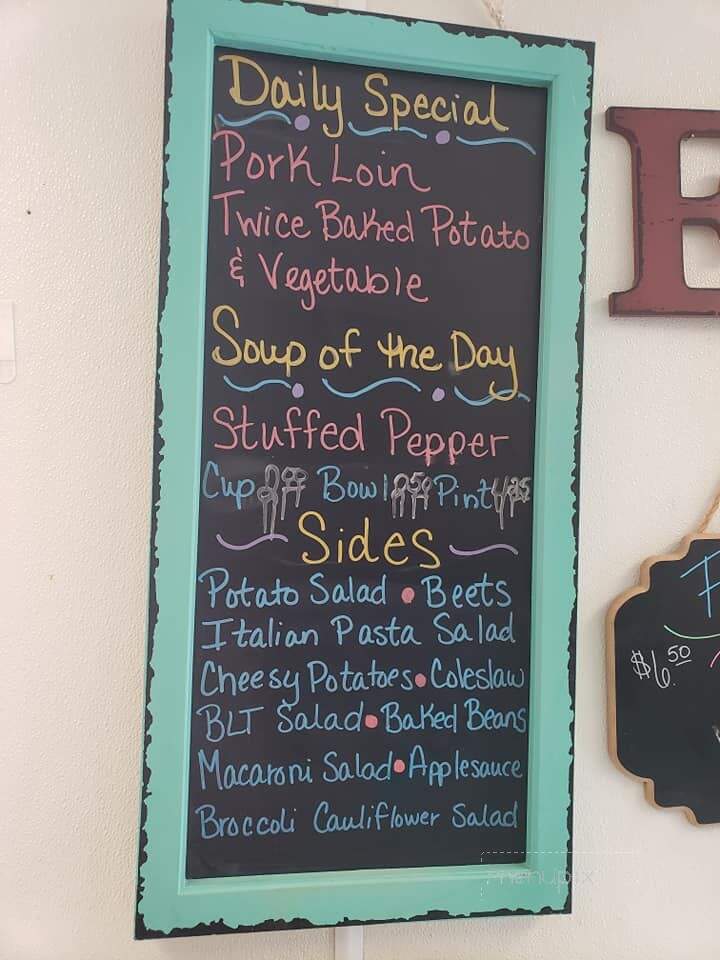 Daily Special
Pork Loin
Twice Baked Potato
& Vegetable
Soup of the Day
Stuffed Pepper
Cup Bowl Pint
Sides
Potato Salad • Beets
Italian Pasta Salad
Cheesy Potatoes • Coleslaw
BLT Salad • Baked Beans
Macaroni Salad • Applesauce
Broccoli Cauliflower Salad
E
$6.50
menupix